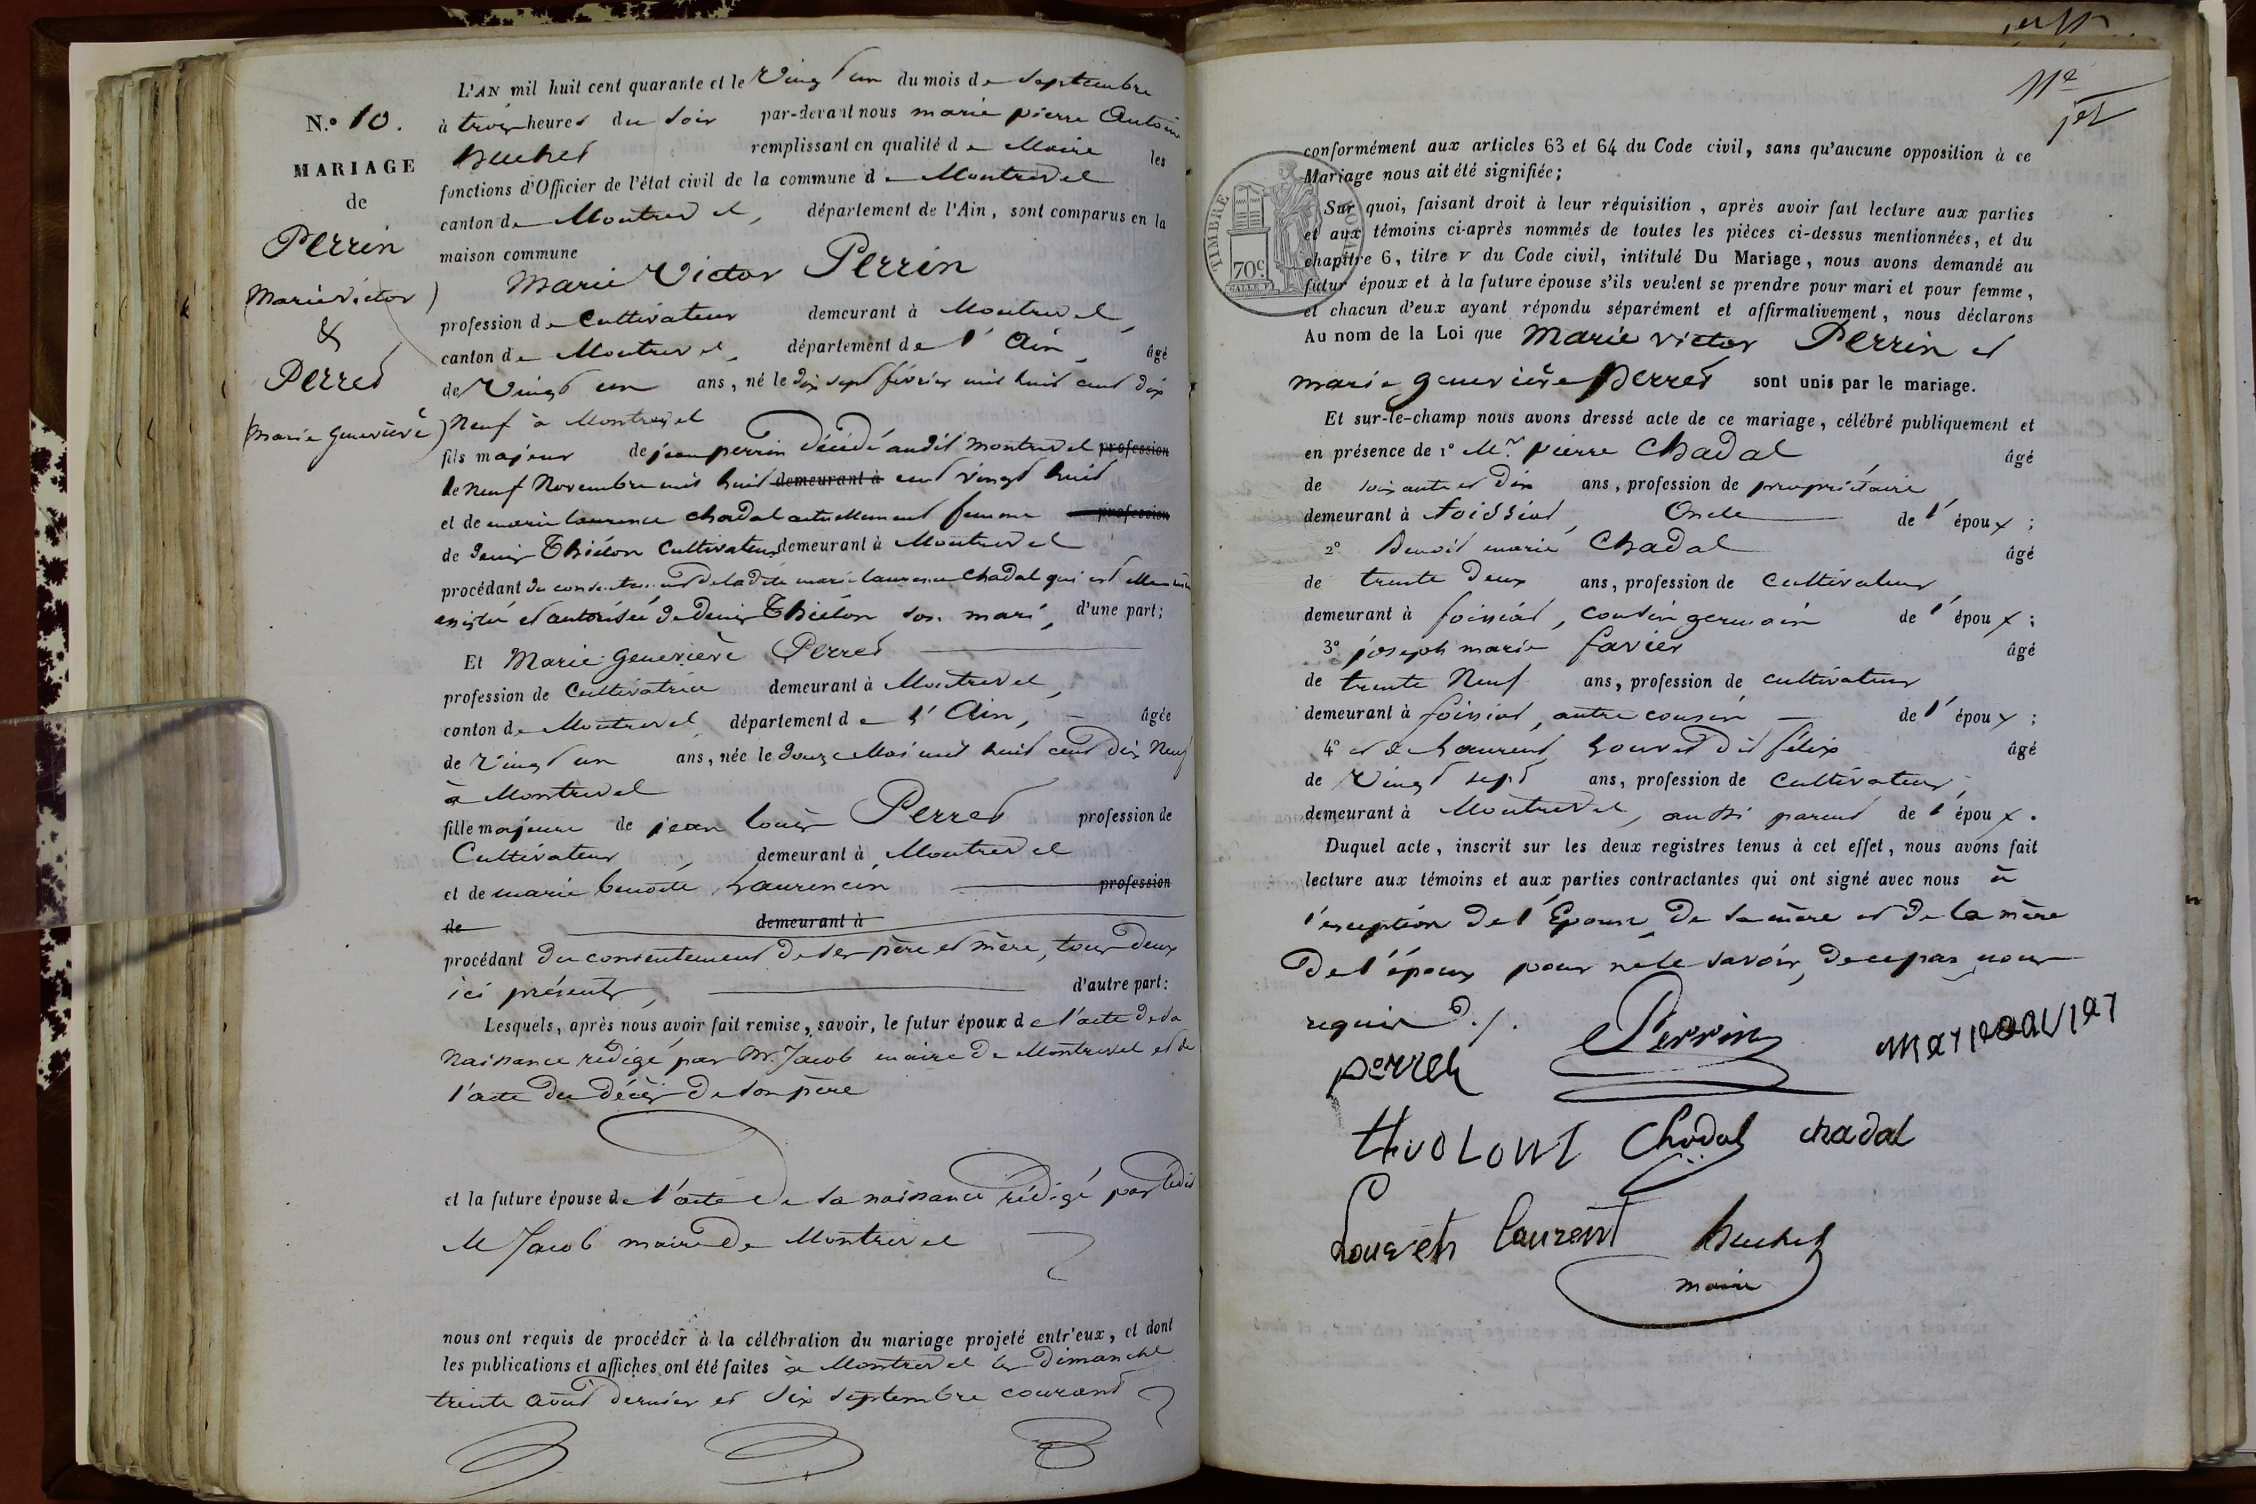 L'AN mil huit cent quarante et le Vingt un du mois de septembre
N.º 10. à trois heures du soir par-devant nous marie pierre Antoine
huchet remplissant en qualité de Maire les
MARIAGE
fonctions d'Officier de l'état civil de la commune de Montrevel
de
canton de Montrevel, département de l'Ain, sont comparus en la
Perrin
maison commune
Marie Victor Perrin
(Marie Victor)
profession de Cultivateur demeurant à Montrevel,
&
canton de Montrevel, département de l'Ain, âgé
Perret
de Vingt un ans, né le dix sept février mil huit cent dix
(marie Geneviève)
Neuf à Montrevel
fils majeur de jean perrin Décédé audit Montrevel profession
le neuf Novembre mil huit demeurant à cent vingt huit
et de marie laurence chadal actuellement femme profession
de Denis Thiélon Cultivateur demeurant à Montrevel
procédant du consentement de ladite marie laurence Chadal qui est elle même
assistée et autorisée de Denis Thiélon son mari, d'une part;
Et Marie Geneviève Perret
profession de Cultivatrice demeurant à Montrevel,
canton de Montrevel, département de l'Ain, âgée
de Vingt un ans, née le douze Mai mil huit cent Dix Neuf
à Montrevel
fille majeure de jean louis Perret profession de
Cultivateur, demeurant à Montrevel
et de marie benoite Laurencin profession
de demeurant à
procédant du consentement de ses père et mère, tous deux
ici présents, d'autre part:
Lesquels, après nous avoir fait remise, savoir, le futur époux de l'acte de sa
Naissance rédigé par Mr. Jacob maire de Montrevel et de
l'acte du décès de son père
et la future épouse de l'acte de sa naissance rédigé par ledit
M Jacob maire de Montrevel
nous ont requis de procéder à la célébration du mariage projeté entr'eux, et dont
les publications et affiches ont été faites à Montrevel les Dimanche
trente août dernier et Six septembre courant
11e
jet
conformément aux articles 63 et 64 du Code civil, sans qu'aucune opposition à ce
Mariage nous ait été signifiée;
TIMBRE ROYAL
70c
Sur quoi, faisant droit à leur réquisition, après avoir fait lecture aux parties
et aux témoins ci-après nommés de toutes les pièces ci-dessus mentionnées, et du
chapitre 6, titre V du Code civil, intitulé Du Mariage, nous avons demandé au
futur époux et à la future épouse s'ils veulent se prendre pour mari et pour femme,
et chacun d'eux ayant répondu séparément et affirmativement, nous déclarons
Au nom de la Loi que Marie victor Perrin et
marie geneviève Perret sont unis par le mariage.
Et sur-le-champ nous avons dressé acte de ce mariage, célébré publiquement et
en présence de 1º Mr. pierre Chadal âgé
de soixante et Dix ans, profession de propriétaire
demeurant à foissiat, Oncle de l'époux;
2º Benoît marie Chadal âgé
de trente Deux ans, profession de Cultivateur
demeurant à foissiat, cousin germain de l'époux;
3º joseph marie favier âgé
de trente Neuf ans, profession de cultivateur
demeurant à foissiat, autre cousin de l'époux;
4º et de Laurent Louvet dit félix âgé
de Vingt sept ans, profession de Cultivateur,
demeurant à Montrevel, aussi parent de l'époux.
Duquel acte, inscrit sur les deux registres tenus à cet effet, nous avons fait
lecture aux témoins et aux parties contractantes qui ont signé avec nous à
l'exception de l'Epouse, de sa mère et de la mère
De l'époux pour ne le savoir, de ce par nous
requis ./.
Perrin
perreh
Chadal chadal
Louveth laurent huchet
maire